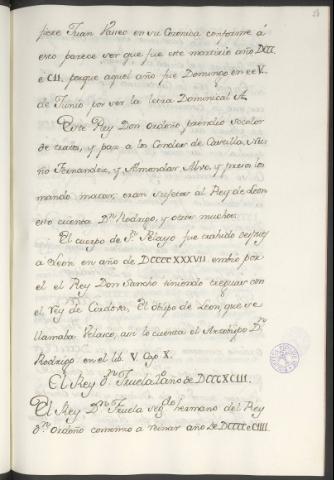 fiere Juan Vaseo en su Coronica conforme á
esto parece ser que fue este martirio año DCCC
e CII. porque aquel año fue Domingo en el V.
de Junio por ser la letra Dominical A.
Este Rey Don Ordoño prendio so color
de tratos, y paz a los Condes de Castilla Nu
ño Fernandez, y Almondar Alvo, y presos los
mando matar, eran sujetos al Rey de Leon
esto cuenta Dn. Rodrigo, y otros muchos.
El cuerpo de Sn. Pelayo fue trahido despues
a Leon en año de DCCCC XXXVII embio por
el el Rey Don Sancho teniendo treguas con
el Rey de Cordova, El Obispo de Leon, que se
llamaba Velasco, así lo cuenta el Arzobispo Dn.
Rodrigo en el lib. V Cap X.
El Rey Dn. Fruela año de DCCCXCIII.
El Rey Dn. Fruela segdo. hermano del Rey
Dn. Ordoño comenzo a reinar año de DCCCC e IIII.